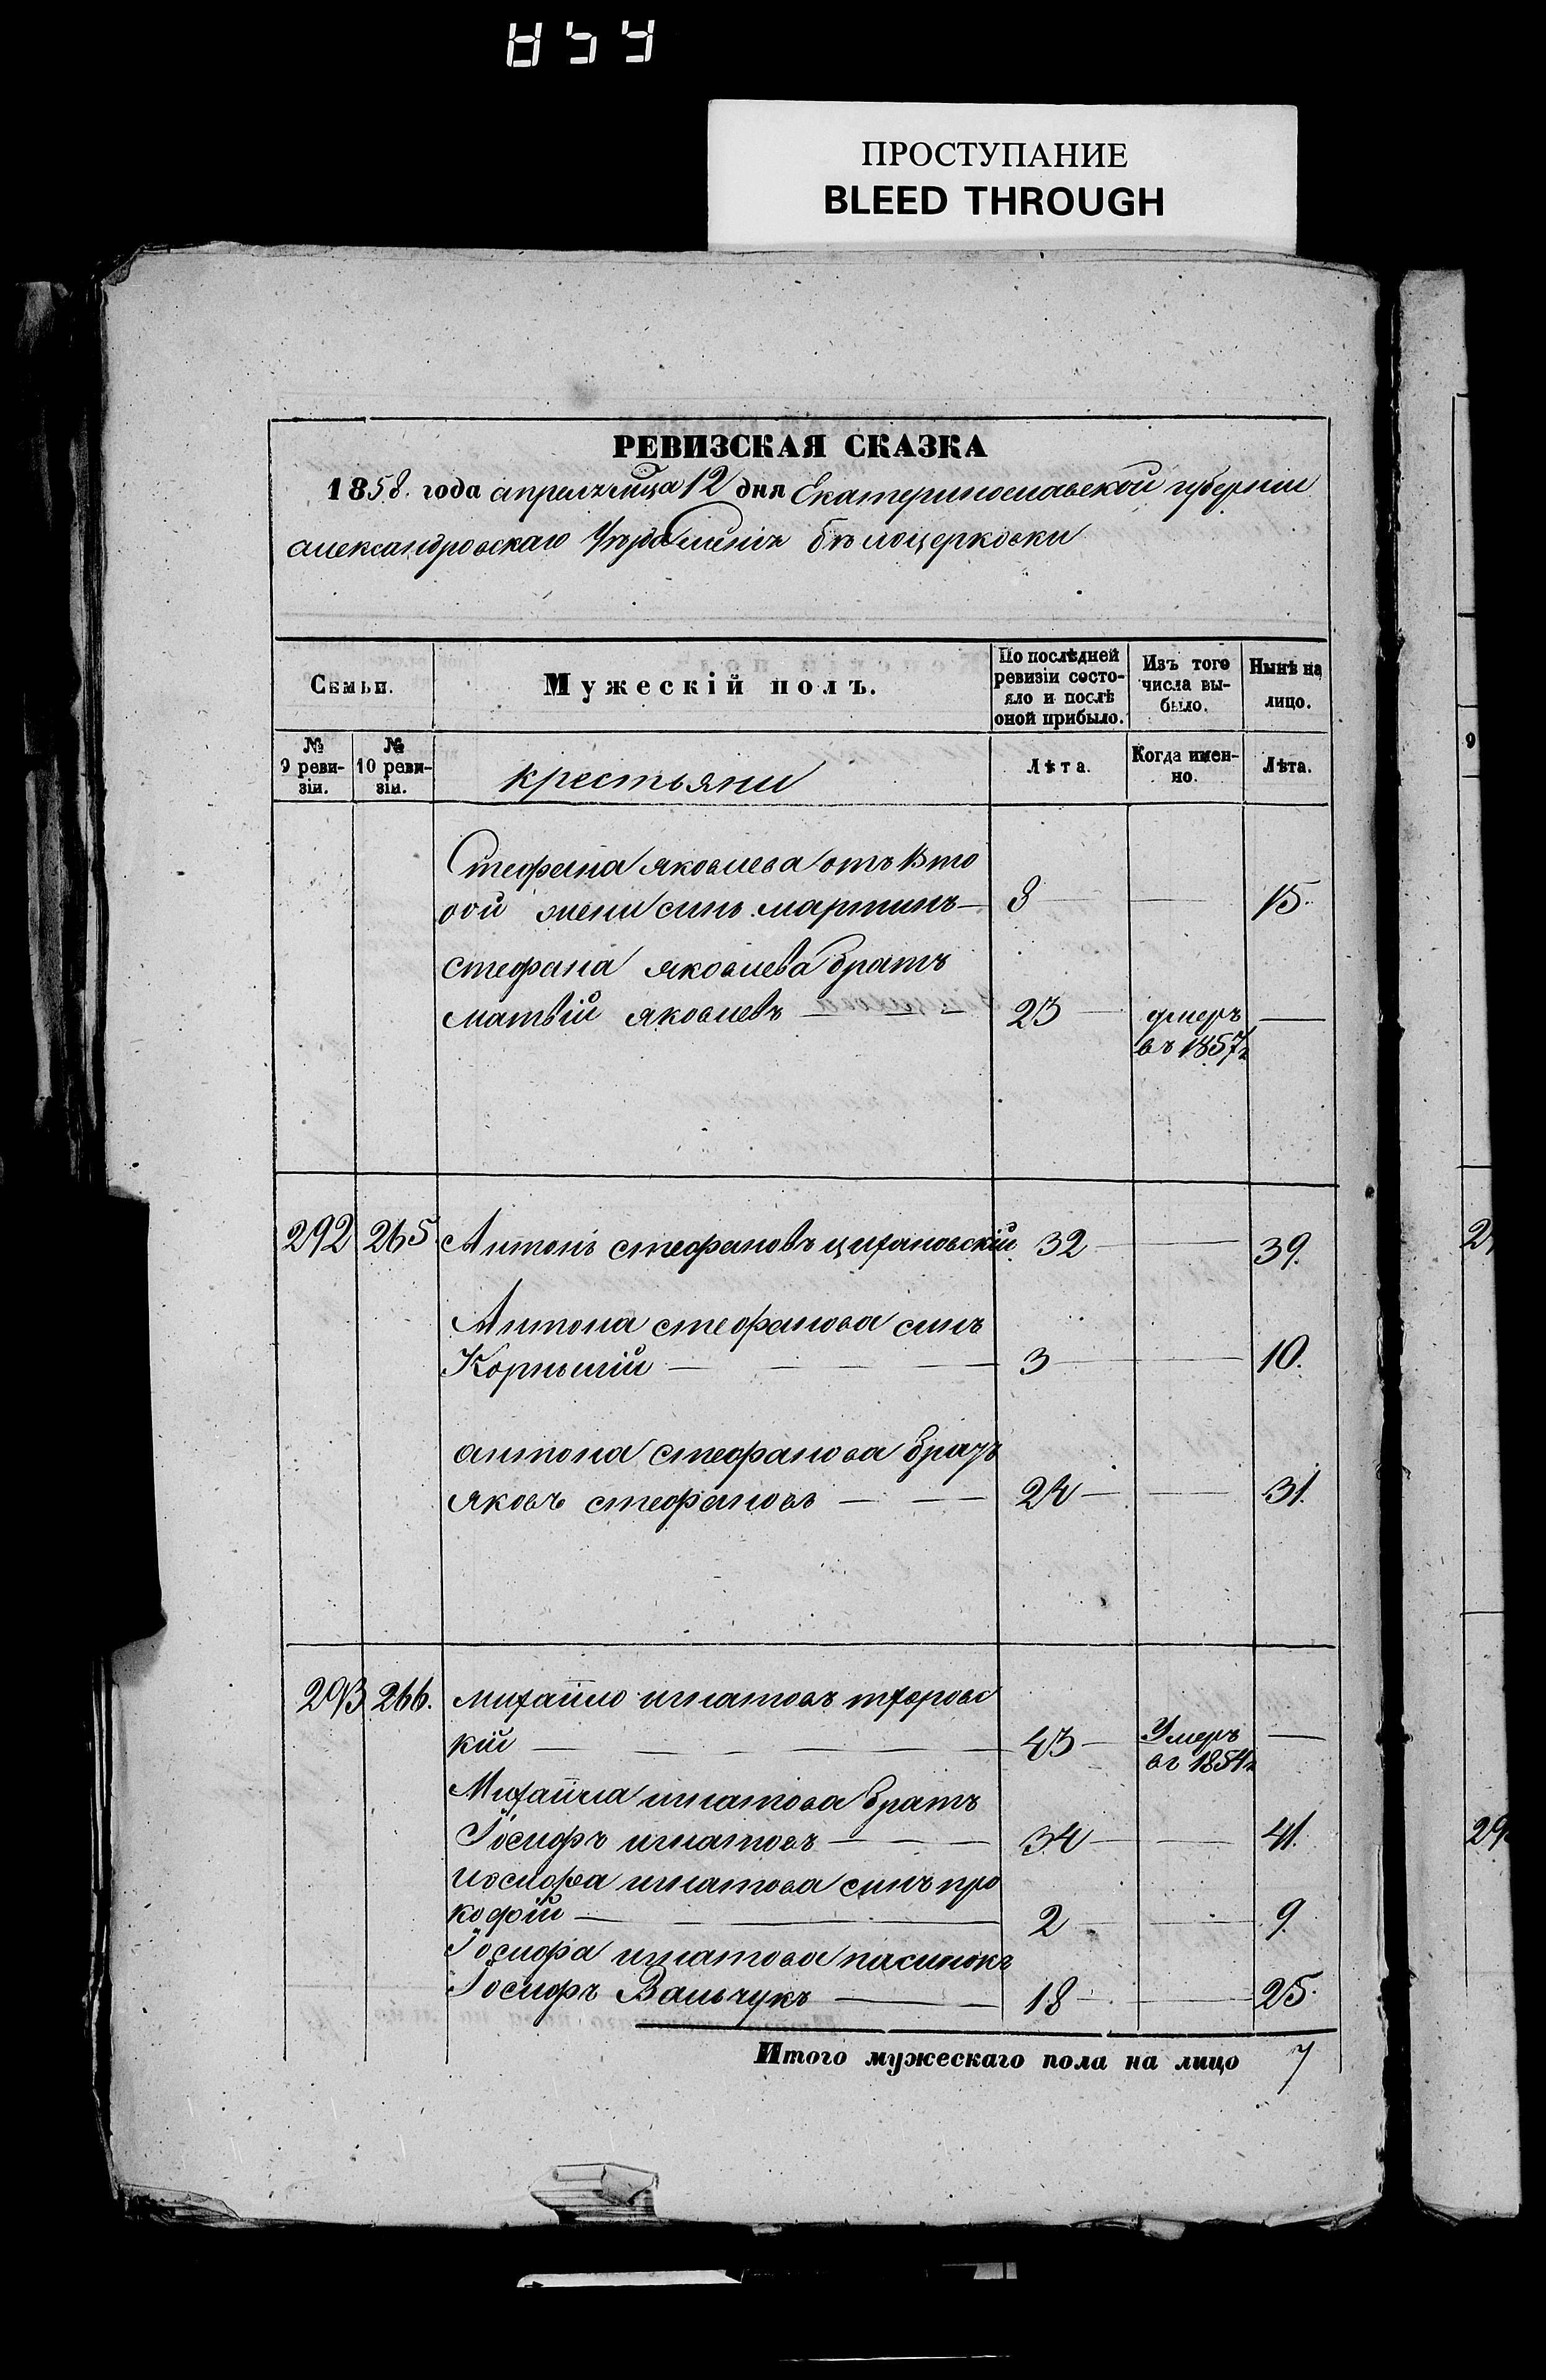 854
ПРОСТУПАНИЕ
BLEED THROUGH
РЕВИЗСКАЯ СКАЗКА
1858. года апреля мца 12 дня Екатеринославской губернии
александровскаго Уезда бѣлоцерковки
Семьи.
Мужескій полъ.
По послѣдней ревизіи состо-яло и послѣ оной прибыло.
Изъ того числа вы-было.
Нынѣ на лицо.
№ 9 реви-зіи.
№ 10 реви-зіи.
крестьяни
Лѣта.
Когда имен-но.
Лѣта.
Стефана яковлева отъ вто
рой жени синъ мартинъ — 8 — — 15.
стефана яковлева братъ
матвій яковлевъ — — — 23 — умеръ —
въ 1857г
292 265. Антонъ стефановъ цихановскій 32 — — 39.
Антона стефанова синъ
Корнылій — — — 3 — — 10.
антона стефанова братъ
яковъ стефановъ — — 24 — — 31.
293 266. михайло игнатовъ
кій — — — — 43 — Умеръ —
въ 1854г
Михайла игнатова братъ
Іосифъ игнатовъ — — 34 — — 41.
иосифа игнатова синъ про
кофій — — — 2 — — 9.
Іосифа игнатова пасинокъ
Іосифъ Вальчукъ — — 18 — — 25.
Итого мужескаго пола на лицо 7
9